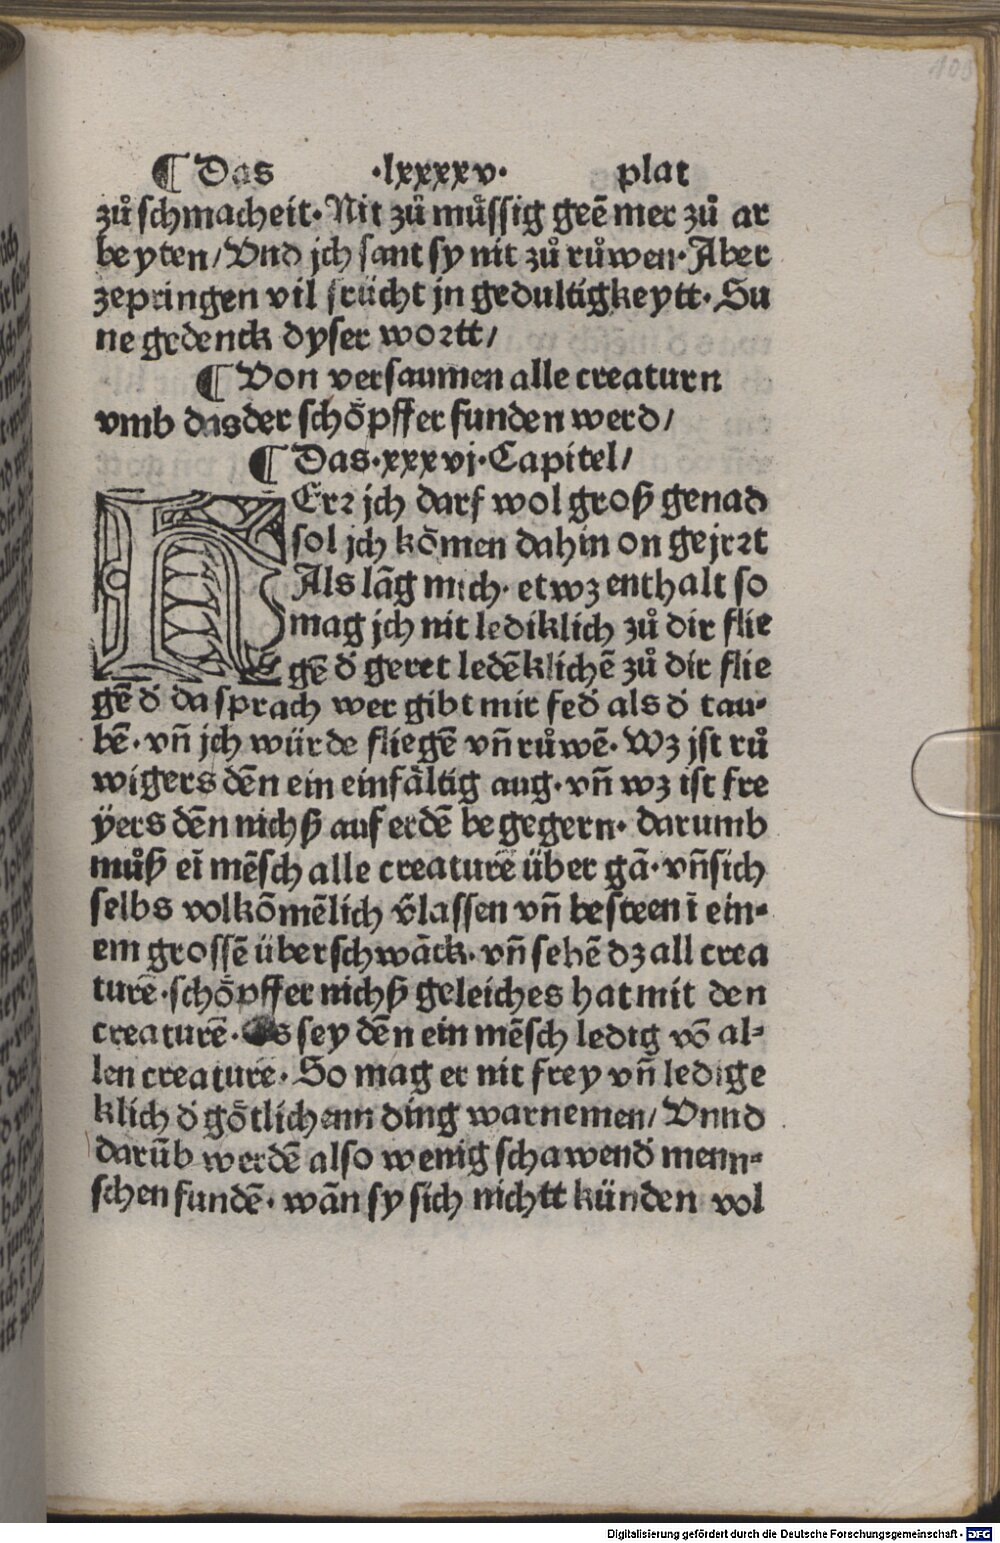 103
¶ Das ·lxxxxv· plat
zů schmacheit· Nit zů můssig geē mer zů ar
beyten/ Vnd jch sant sy nit zů růwen· Aber
zepringen vil frücht jn gedultigkeytt· Su
ne gedenck dyser wortt/
¶ Von versaumen alle creaturn
vmb das der schöpffer funden werd/
¶ Das·xxxvj·Capitel/
HErr jch darf wol groß genad
sol jch kōmen dahin on gejrrt
Als lāg mich· etwz enthalt so
mag jch nit lediklich zů dir flie
gē d́ geret ledēklichē zů dir flie
gē d́ da sprach wer gibt mir fed́ als d́ tau⸗
bē· vn̄ jch würde fliegē vn̄ růwē· Wz jst rů
wigers dēn ein einfältig aug· vn̄ wz ist fre
ÿers dēn nichß auf erdē begegern· darumb
můß eī mēsch alle creaturē über gā· vn̄ sich
selbs volkōmēlich v̄lassen vn̄ besteen ī ein⸗
em grossē überschwāck· vn̄ sehē dz all crea
turē·schöpffer nichß geleiches hat mit den
creaturē· Es sey dēn ein mēsch ledig vō al⸗
len creaturē· So mag er nit frey vn̄ ledige
klich d́ götlichenn ding warnemen/ Vnnd
darūb werdē also wenig schawend́ menn⸗
schen fundē· wān sy sich nichtt künden vol
Digitalisierung gefördert durch die Deutsche Forschungsgemeinschaft - DFG